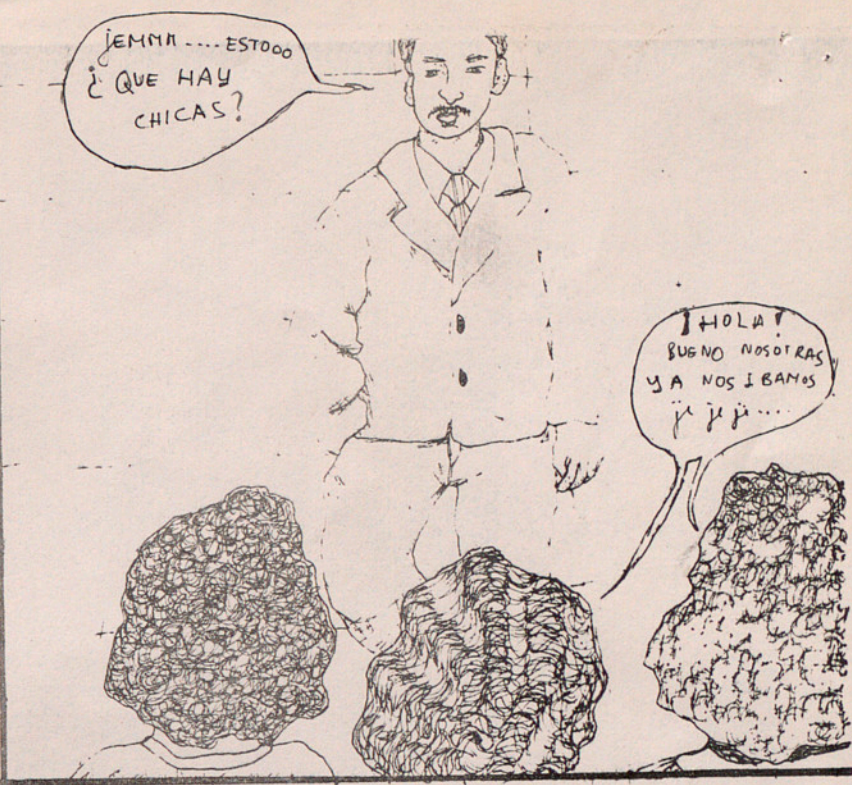 ¡EMMM....ESTOOO
¿QUE HAY
CHICAS?
¡HOLA!
BUENO NOSOTRAS
YA NOS IBAMOS
je je je....